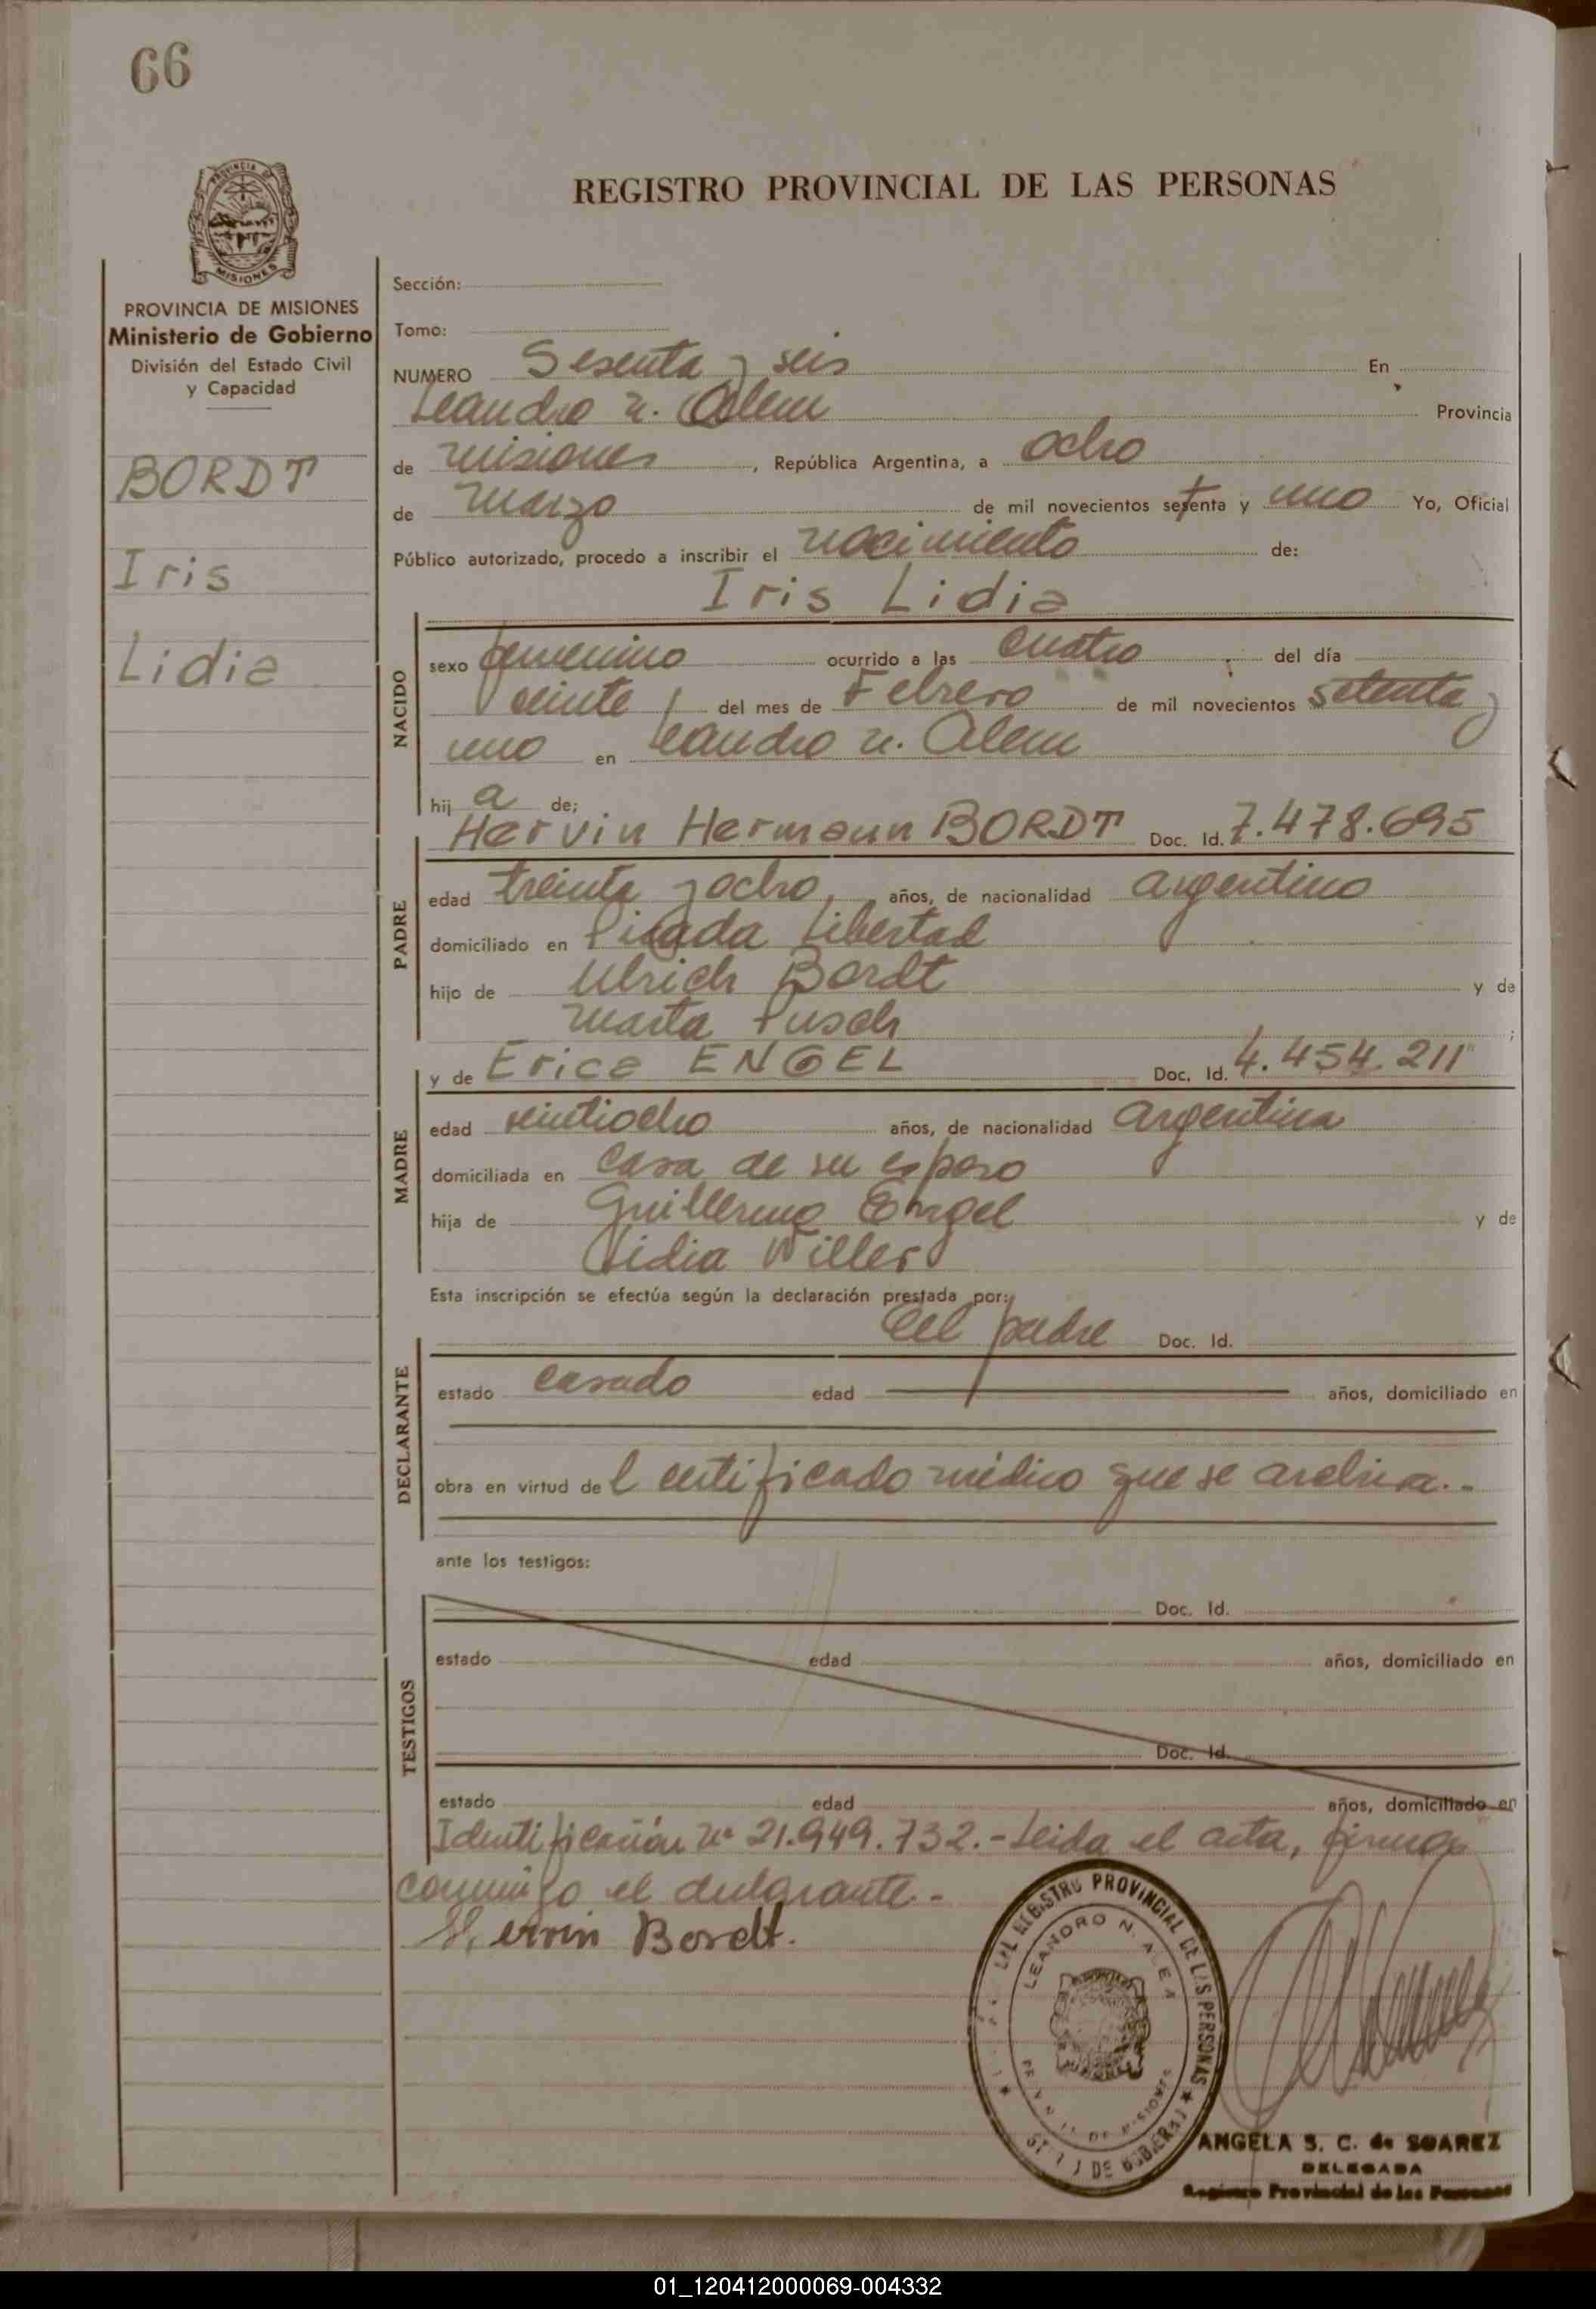 66
PROVINCIA
MISIONES
REGISTRO PROVINCIAL DE LAS PERSONAS
PROVINCIA DE MISIONES
Ministerio de Gobierno
División del Estado Civil
y Capacidad
BORDT
Iris
Lidia
Sección:
Tomo:
NUMERO Sesenta y seis En
Leandro N. Alem Provincia
de Misiones, República Argentina, a ocho
de Marzo de mil novecientos setenta y uno Yo, Oficial
Público autorizado, procedo a inscribir el nacimiento de:
Iris Lidia
NACIDO
sexo femenino ocurrido a las cuatro del día
veinte del mes de Febrero de mil novecientos setenta y
uno en Leandro N. Alem
hij a de:
Hervin Hermann BORDT Doc. Id. 7.478.695
PADRE
edad treinta y ocho años, de nacionalidad argentino
domiciliado en Picada Libertad
hijo de Ulrich Bordt y de
Marta Pusch;
y de Erica ENGEL Doc. Id. 4.454.211
MADRE
edad veintiocho años, de nacionalidad argentina
domiciliada en casa de su esposo
hija de Guillermo Engel y de
Lidia Willer
Esta inscripción se efectúa según la declaración prestada por:
el padre Doc. Id.
DECLARANTE
estado casado edad años, domiciliado en
obra en virtud del certificado médico que se archiva.-
ante los testigos:
TESTIGOS
Doc. Id.
estado edad años, domiciliado en
Doc. Id.
estado edad años, domiciliado en
Identificación Nº 21.949.732.- Leida el acta, firma
conmigo el declarante.-
Hervin Bordt.
REGISTRO PROVINCIAL DE LAS PERSONAS
LEANDRO N. ALEM
ANGELA S. C. de SOAREZ
DELEGADA
Registro Provincial de las Personas
01_120412000069-004332